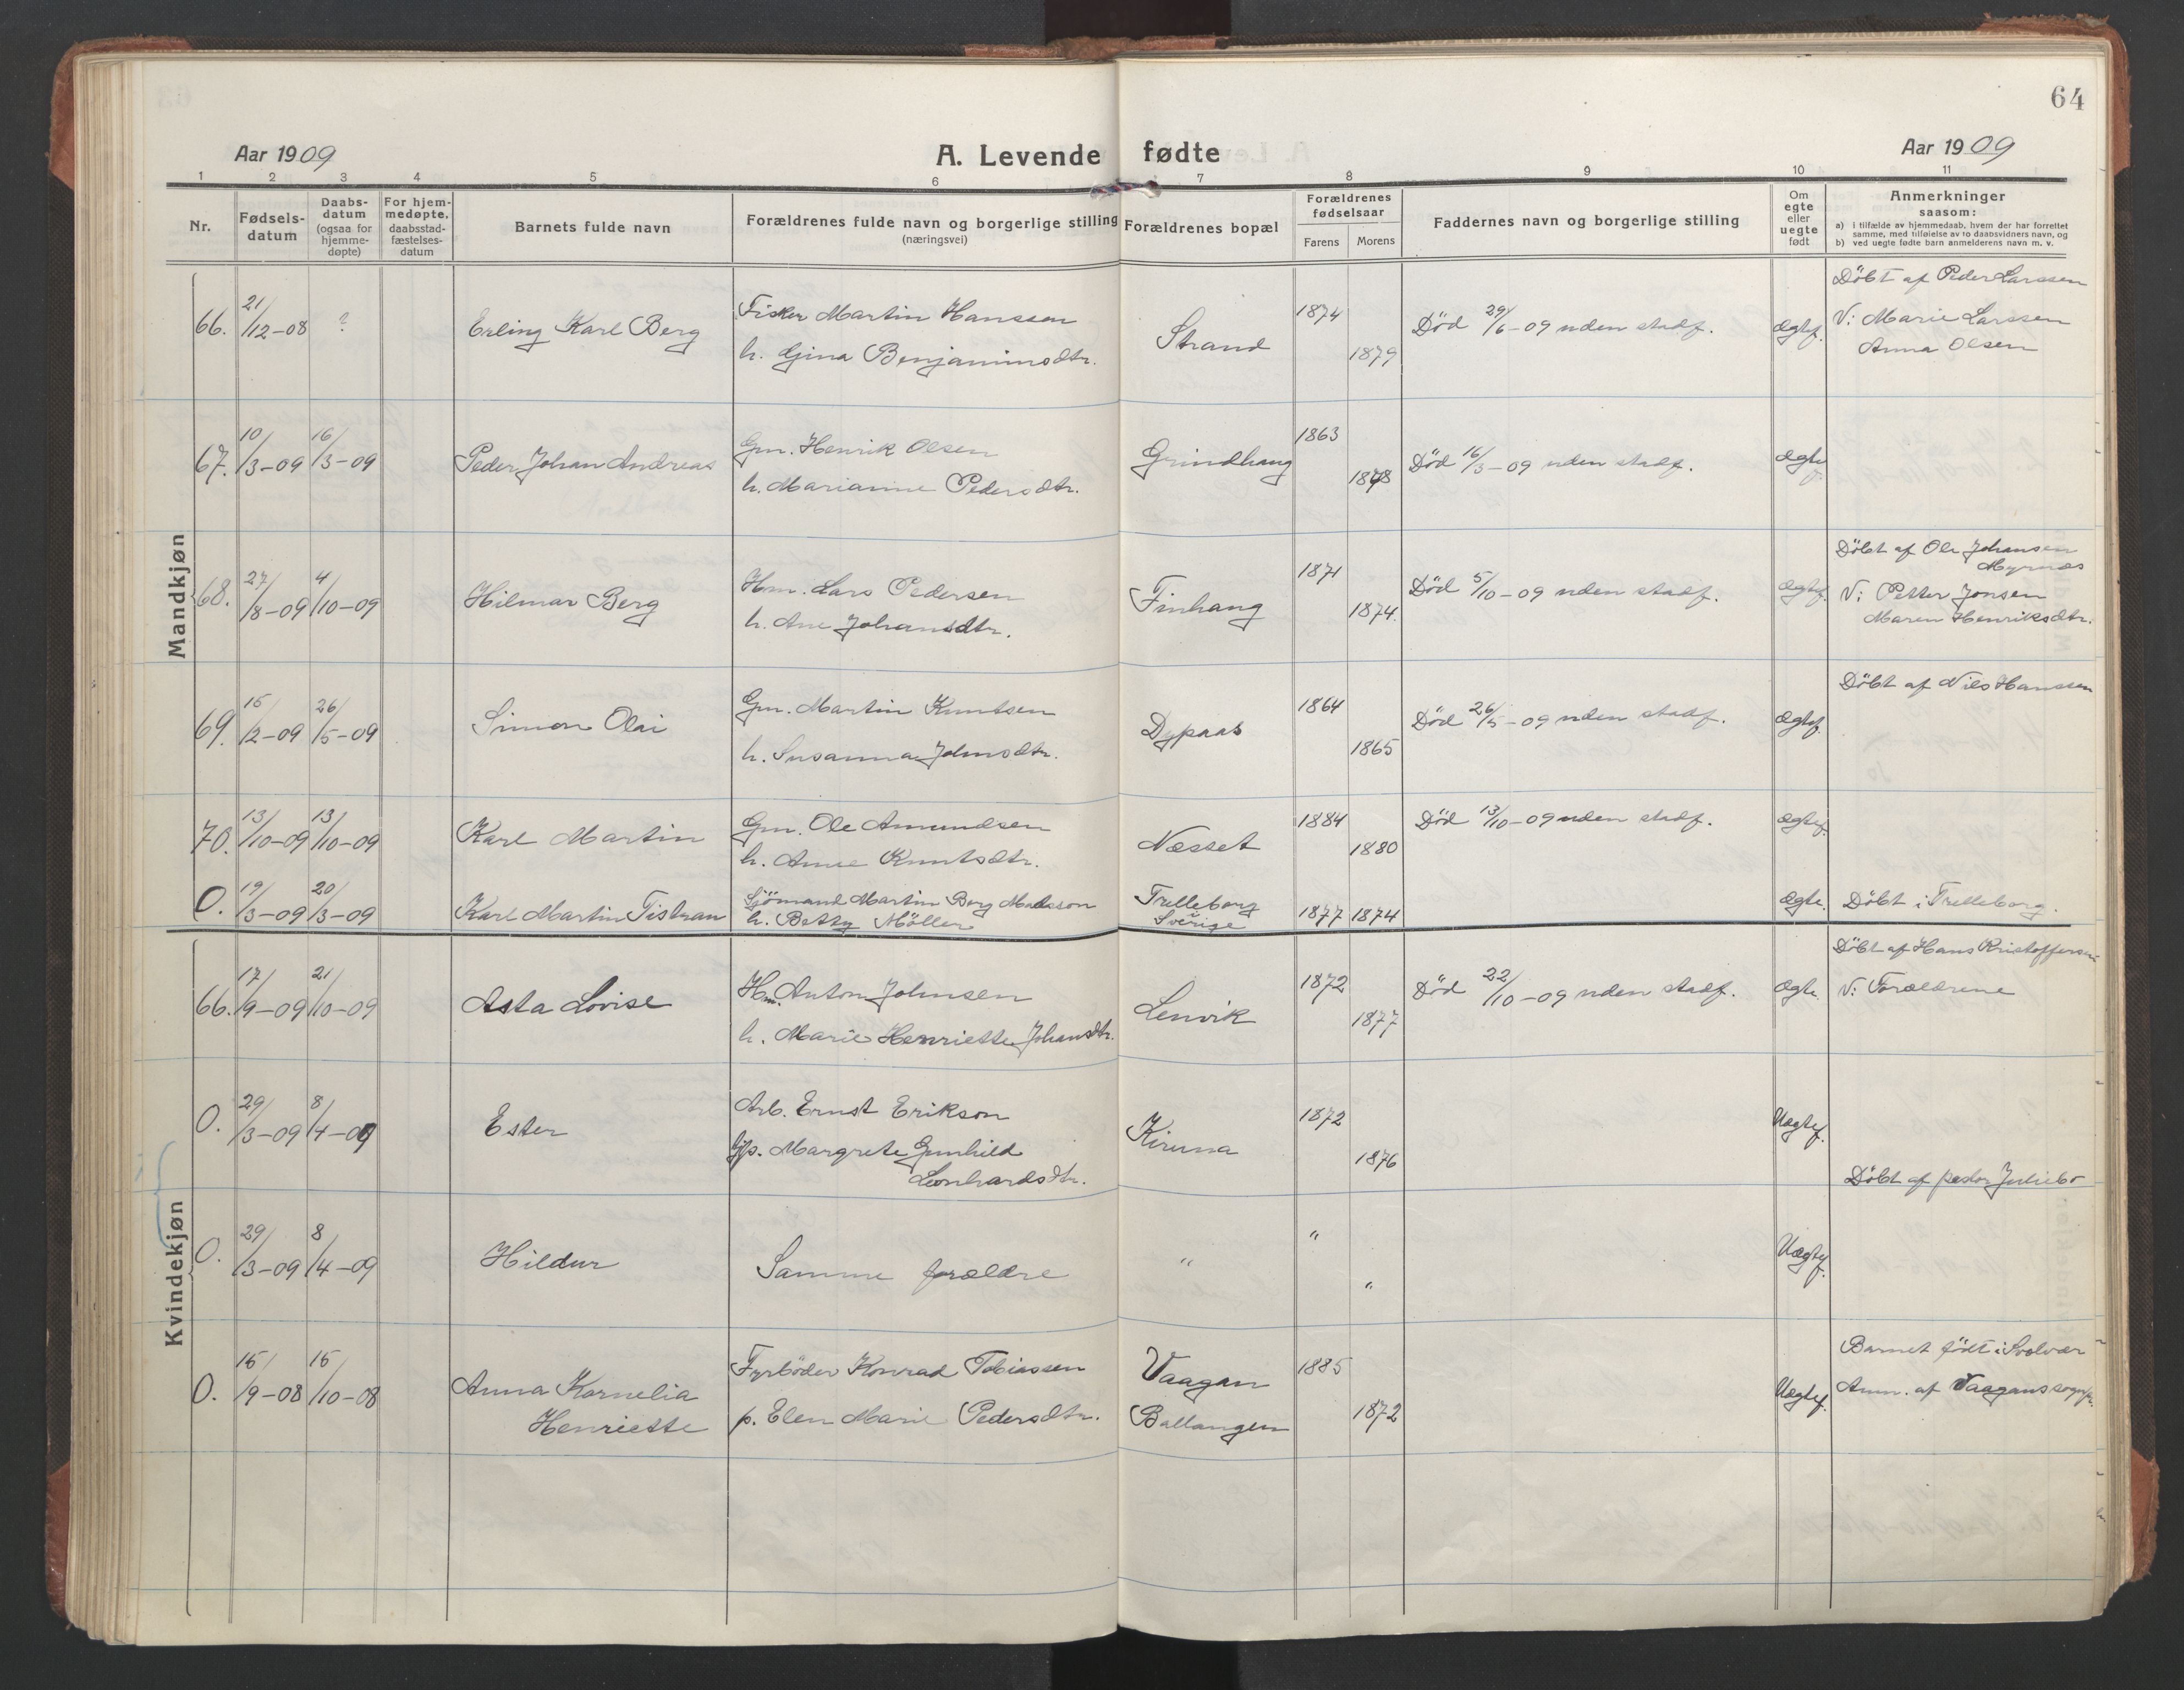 64
Aar 1909 A. Levende fødte Aar 1909
1 2 3 4 5 6 7 8 9 10 11
Nr. Fødsels-datum Daabs-datum (ogsaa for hjemme-døpte) For hjem-medøpte, daabsstad-fæstelses-datum Barnets fulde navn Forældrenes fulde navn og borgerlige stilling (næringsvei) Forældrenes bopæl Forældrenes fødselsaar Farens Morens Faddernes navn og borgerlige stilling Om egte eller uegte født Anmerkninger saasom:
a) i tilfælde av hjemmedaab, hvem der har forrettet samme, med tilføielse av to daabsvidners navn, og
b) ved uegte fødte barn anmelderens navn m. v.
Mandkjøn
66. 21/12-08 ? Erling Karl Berg Fisker Martin Hanssen Strand 1874 Død 29/6-09 uden stadf. Ægtef. Döbt af Peder Larssen
h. Gjina Benjaminsdtr. 1879 V: Marie Larssen
Anna Olsen
67. 10/3-09 16/3-09 Peder Johan Andreas Gm. Henrik Olsen Grindhaug 1863 Død 16/3-09 uden stadf. Ægtef.
h. Marianne Pedersdtr. 1878
68. 27/8-09 4/10-09 Hilmar Berg Hm. Lars Pedersen Finhaug 1871 Død 5/10-09 uden stadf. Ægtef. Döbt af Ole Johansen
Myrnæs
h. Ane Johansdtr. 1874. V: Petter Jonsen
Maren Henriksdtr.
69. 15/2-09 26/5-09 Simon Olai Gm. Martin Knutsen Dypaas 1864 Død 26/5-09 uden stadf. Ægtef. Döbt af Nils Hanssen
h. Susanna Johnsdtr. 1865
70. 13/10-09 13/10-09 Karl Martin Gm. Ole Amundsen Næsset 1884 Død 13/10-09 uden stadf. Ægtef.
h. Anne Knutsdtr. 1880
0. 19/3-09 20/3-09 Karl Martin Tistran Sjömand Martin Berg Madsson Trelleborg 1877 1874 Ægte. Döbt i Trelleborg.
h. Betty Möller Sverige
Kvindekjøn
66. 17/9-09 21/10-09 Asta Lovise Hm. Anton Johnsen Lenvik 1872 Død 22/10-09 uden stadf. Ægte. Döbt af Hans Kristoffersen
h. Marie Henriette Johansdtr. 1877 V: Forældrene
0. 29/3-09 8/4-09 Ester Arb. Ernst Erikson Kiruna 1872 Uægtef.
Gp. Margrete Gunhild 1876
Leonhardsdtr. Döbt af pastor Juliebø
0. 29/3-09 8/4-09 Hildur Samme forældre " " " Uægtef.
0. 15/9-08 15/10-08 Anna Kornelia Fyrbøder Konrad Tobiassen Vaagan 1885 Uægtef. Barnet födt i Svolvær
Henriette p. Elen Marie Pedersdtr. Ballangen 1872 Anm. af Vaagans sognpr.